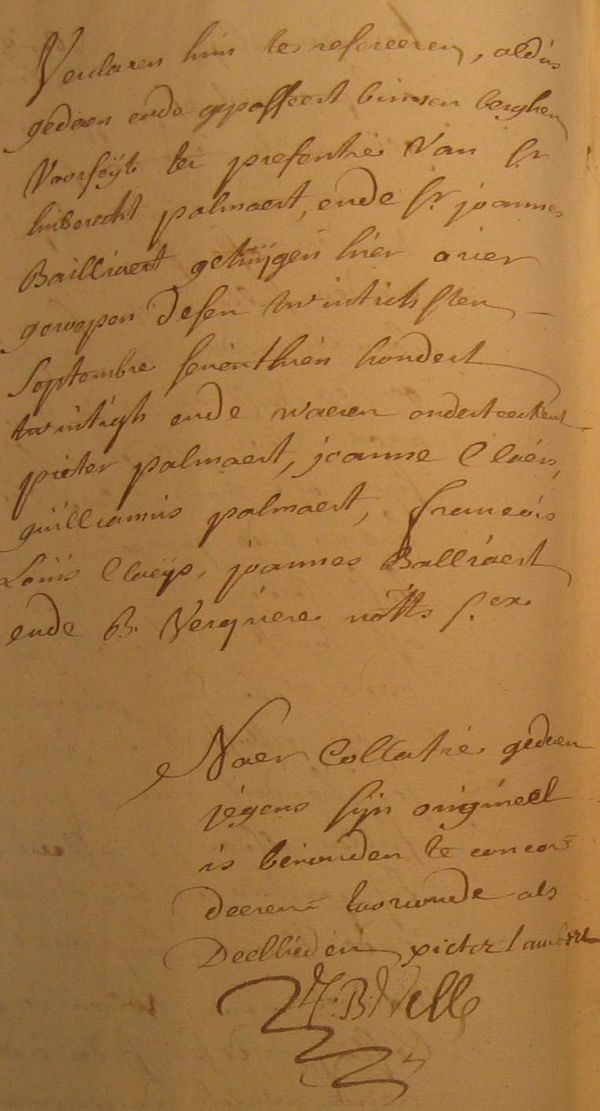 Verclaren hun te refereeren, aldus
gedaen ende gepasseert binnen berghen
Voorseijt ter presentie van Sr
huberecht palmaert, ende Sr joannes
Bailliaert getuijgen hier over
geroepen desen twintichsten
Septembre seventhien hondert
twintigh ende waeren onderteeckent
pieter palmaert, joanne Claeis,
guilliamus palmaert, francois
Louis Claeijs, joannes Balliaert
ende B. Verquere notts
Naer Collatie gedaen
jegens sijn origineel
is bevonden te concor=
deeren= als
Deellieden pieter lambrec